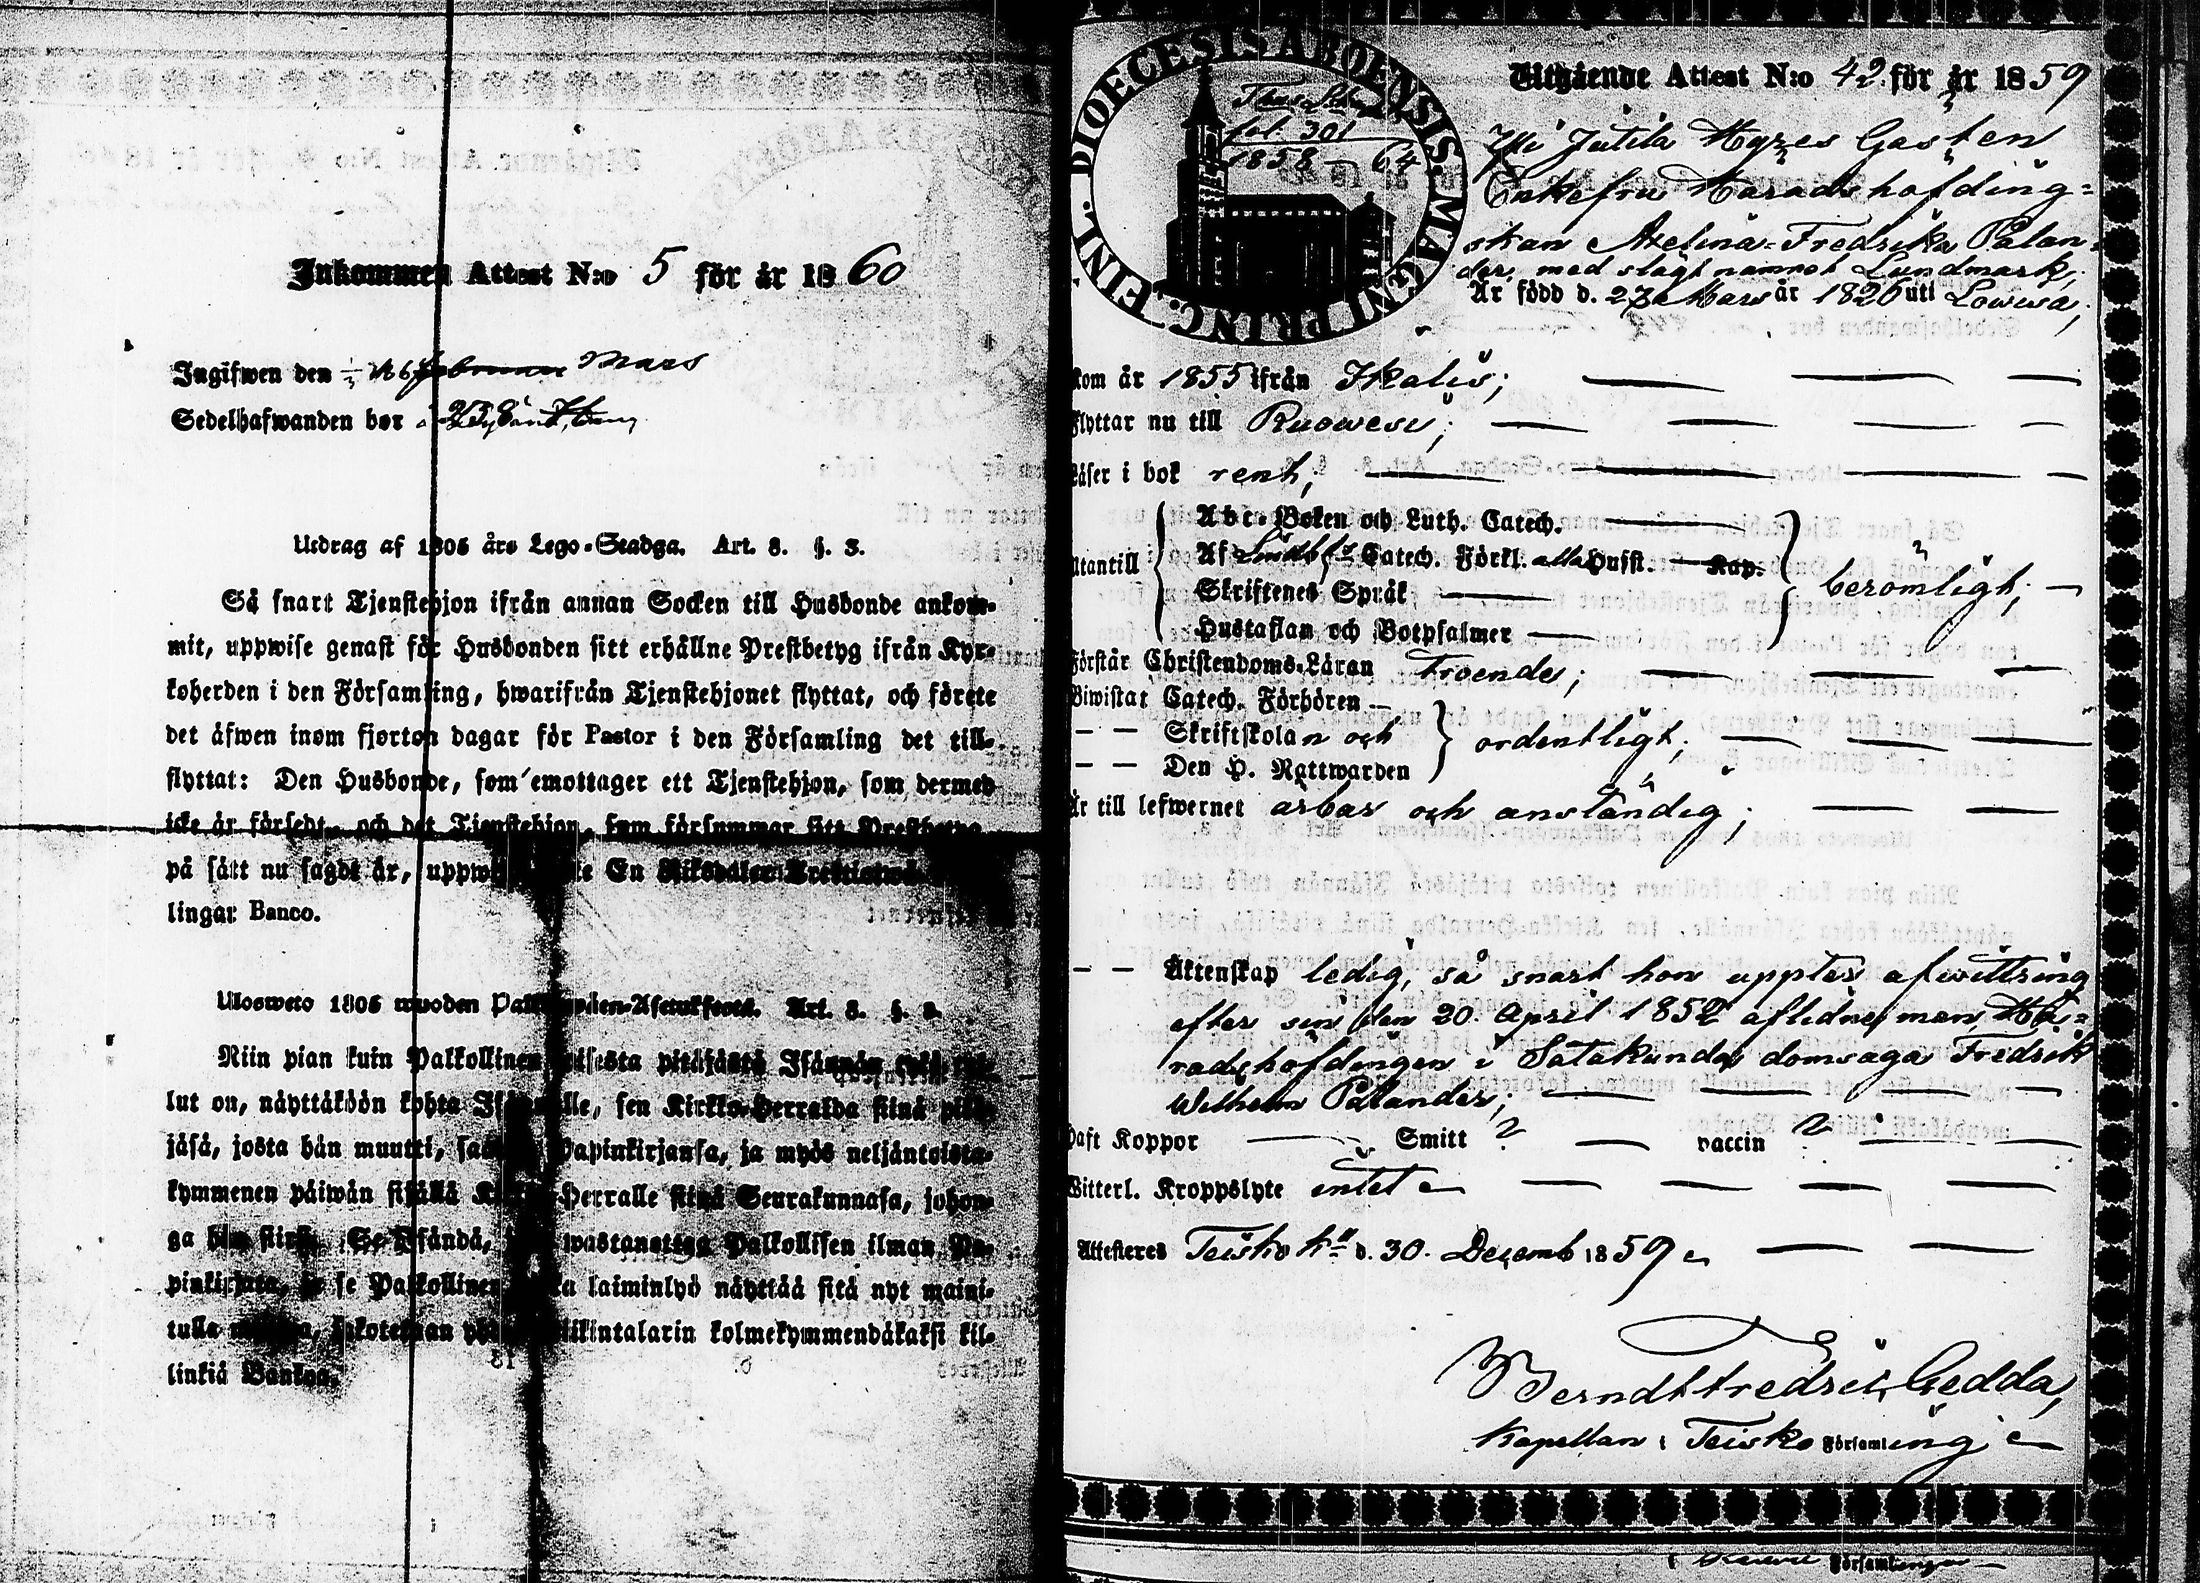 Inkommen Attest N:o 5 för år 1860
Ingifwen den Mars
Sedelhafwanden bor
Utdrag af 1805 års Lego-Stadga. Art. 8. §. 3.
Så snart Tjenstehjon ifrån annan Socken till Husbonde ankom-
mit, uppwise genast för Husbonden sitt erhållne Prestbetyg ifrån Kyr-
koherden i den Församling, hwarifrån Tjenstehjonet flyttat, och förete
det äfwen inom fjorton dagar för Pastor i den Församling det till-
flyttat: Den Husbonde, som emottager ett Tjenstehjon, som dermed
icke är försedt, och det Tjenstehjon, som försummar sitt Prestbetyg
på sätt nu sagdt är, uppw En Riksdaler
lingar Banco.
Ulosweto 1805 wuoden Asetuksesta. Art. 8. §. 3.
Niin pian kuin Palkollinen toisesta pitäjästä Isännän
lut on, näyttäköön kohta Isännälle, sen Kirkko-Herralda siinä pitä-
jäsä, josta hän muutti, Papinkirjansa, ja myös neljäntoista-
kymmenen päiwän sisällä Kirkko-Herralle siinä Seurakunnasa, johon-
ga hän Se Isändä, wastanottaa Palkollisen ilman Pa-
pinkirjata, ja se Palkollinen laiminlyö näyttää sitä nyt maini-
tulla kolmekymmendäkaksi kil-
linkiä Bankoa.
EINL. DIOECESIS ABOENSIS MAGNI PRINC.
fol. 301
1858 – 64
Utgående Attest N:o 42. för år 1859
Jutila Gästen
Enkefru Häradshöfding-
skan Axelina Fredrika Palan-
der, med slägtnamnet Lundmark,
Är född d. 27 Mars år 1826 uti Lowisa,
kom år 1855 ifrån Ikalis;
flyttar nu till Ruowesi;
Läser i bok rent;
Utantill
Abc-Boken och Luth. Catech.
Af Catech. Förkl. alla Hufst. Kap.
Skriftenes Språk
Hustaflan och Botpsalmer
berömligt;
Förstår Christendoms-Läran Troende;
Biwistat Catech. Förhören
– – Skriftskolan och
– – Den H. Nattwarden
ordentligt;
Är till lefwernet ärbar och anständig;
– – Äktenskap ledig, så snart hon uppter afwittring
efter sin den 20. April 1852 aflidne man, Hä-
radshöfdingen i Satakunda domsaga Fredrik
Wilhelm Palander;
Haft Koppor Smitt ? vaccin ?
Witterl. Kroppslyte intet
Attesteres Teisko d. 30. Decemb 1859
Berndt Fredrik Gedda,
Kapellan i Teisko Församling
Församlingen